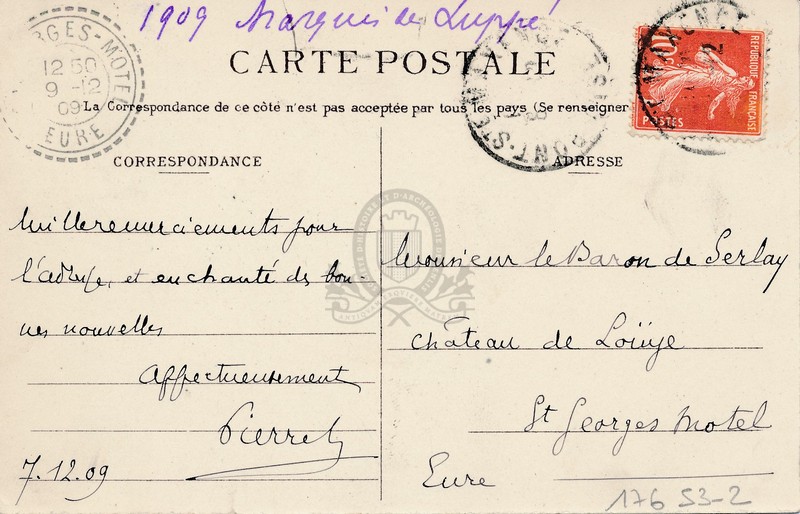 1909 Marquis de Luppé
CARTE POSTALE
La Correspondance de ce côté n'est pas acceptée par tous les pays (Se renseigner
RGES-MOTEL
12 50
9 -12
09
EURE
PONT-STE
10
REPUBLIQUE FRANÇAISE
POSTES
CORRESPONDANCE
Mille remerciements pour
l'adresse, et enchanté des bon-
nes nouvelles
Affectueusement
Pierre
7.12.09
ADRESSE
Monsieur le Baron de Serlay
Château de Loüye
St Georges Motel
Eure
176 S3-2